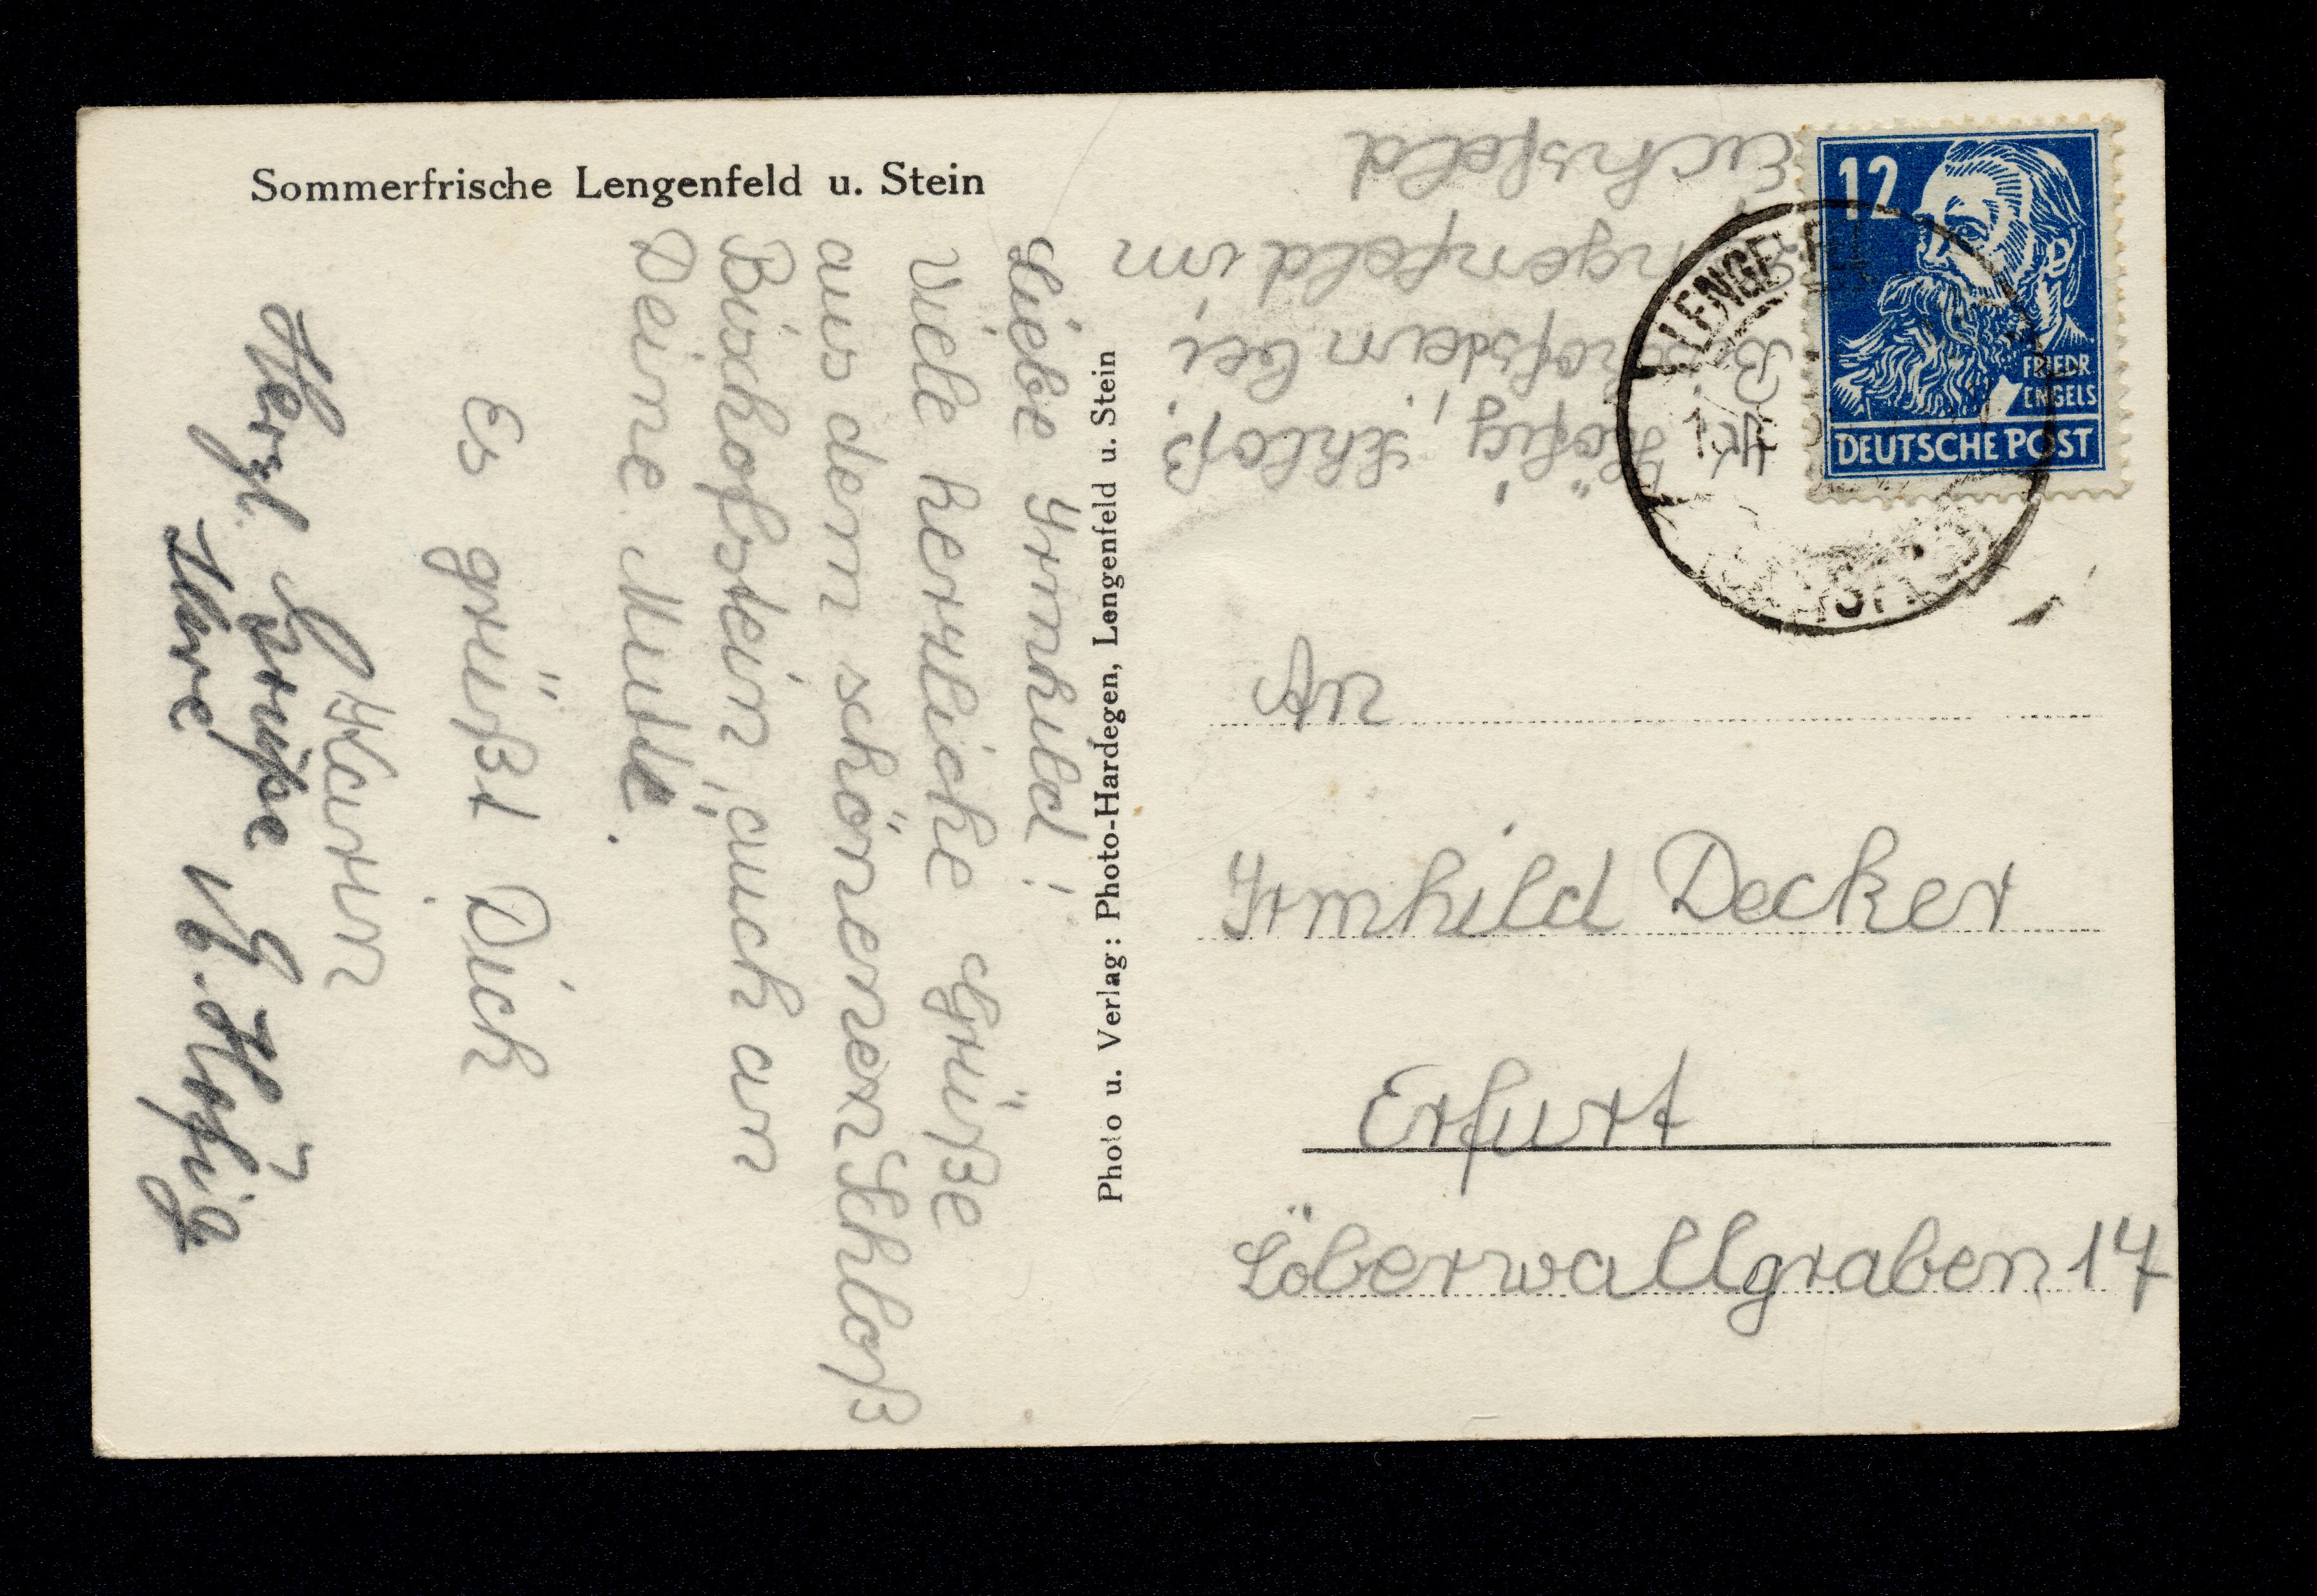 Sommerfrische Lengenfeld u. Stein
Liebe Irmhild!
Viele herzliche Grüße
aus dem schönenen Schloß
Bischofstein, auch an
Deine Mutti.
Es grüßt Dich
Karin
Herzl. Grüße
Ihre G. Höfig
Photo u. Verlag: Photo-Hardegen, Lengenfeld u. Stein
Höfig, Schloß
Bischofstein bei
Lengenfeld im
Eichsfeld
12
FRIEDR
ENGELS
DEUTSCHE POST
LENGENFELD
An
Irmhild Decker
Erfurt
Löberwallgraben 17